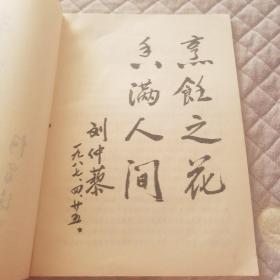 烹饪之花
香满人间
刘仲藜
一九八七、四、廿五。